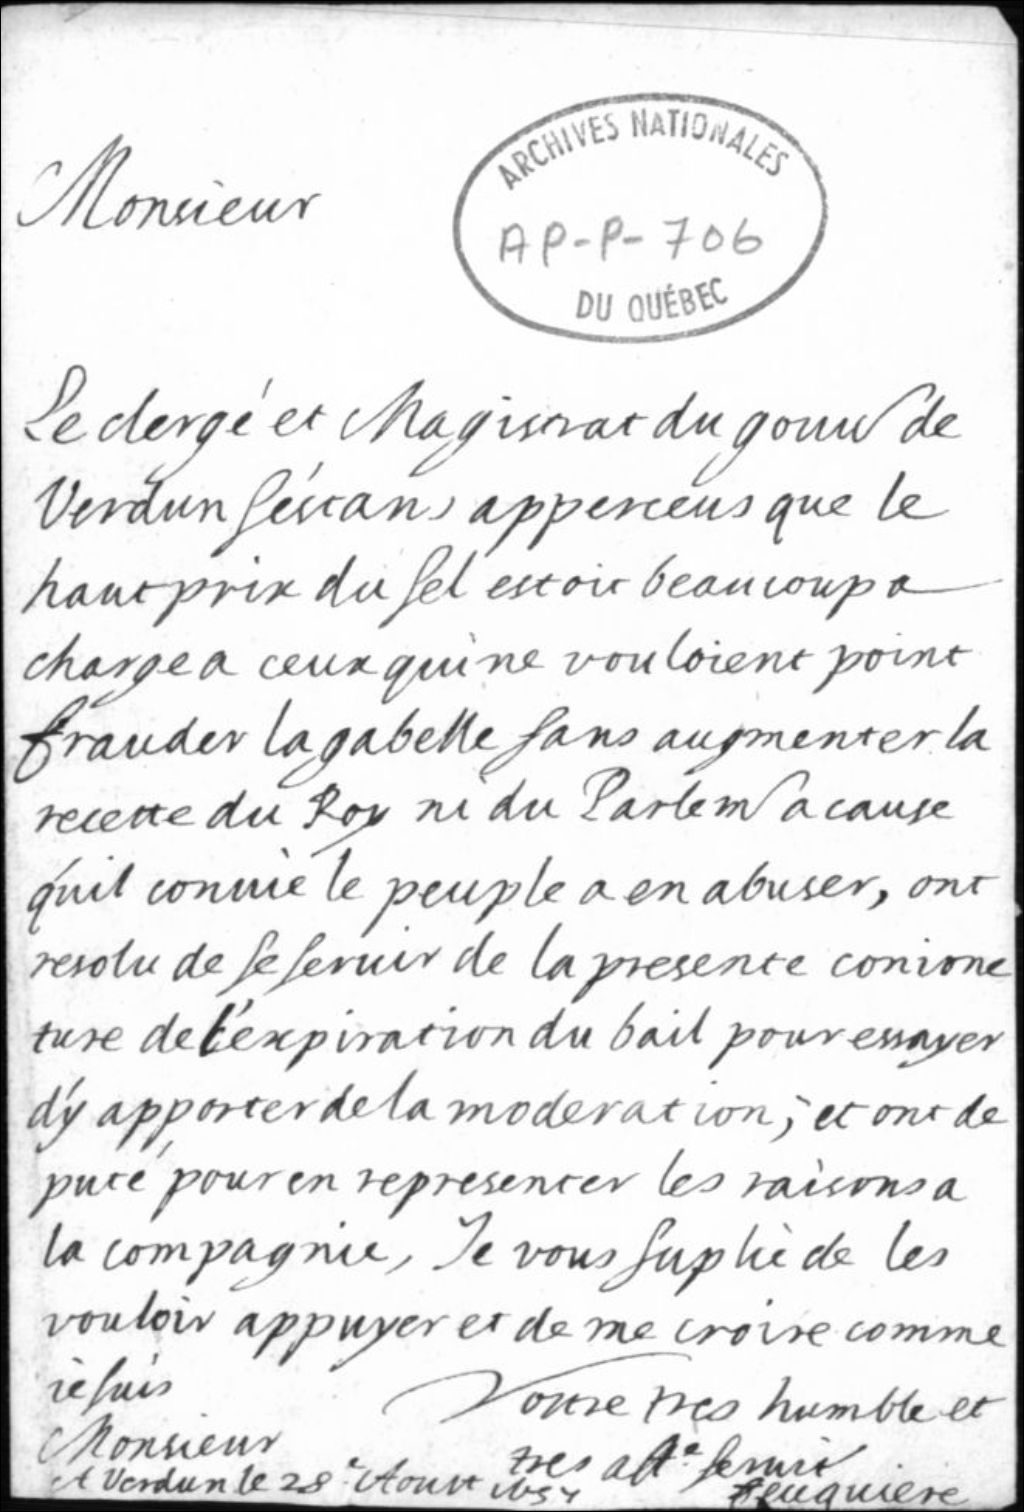 Monsieur
ARCHIVES NATIONALES
AP-P-706
DU QUÉBEC
Le clergé et Magistrat du gouu de
Verdun sestans apperceus que le
haut prix du sel estoit beaucoup a
charge a ceux qui ne vouloient point
frauder la gabelle sans augmenter la
recette du Roy ni du Parlem a cause
quil conuie le peuple a en abuser, ont
resolu de se seruir de la presente conionc
ture de l'expiration du bail pour essayer
d'y apporter de la moderation; et ont de
puté pour en representer les raisons a
la compagnie, Je vous suplie de les
vouloir appuyer et de me croire comme
ie suis
Vostre tres humble et
Monsieur
tres affe seruit
A Verdun le 28e Aoust
Feuquiere